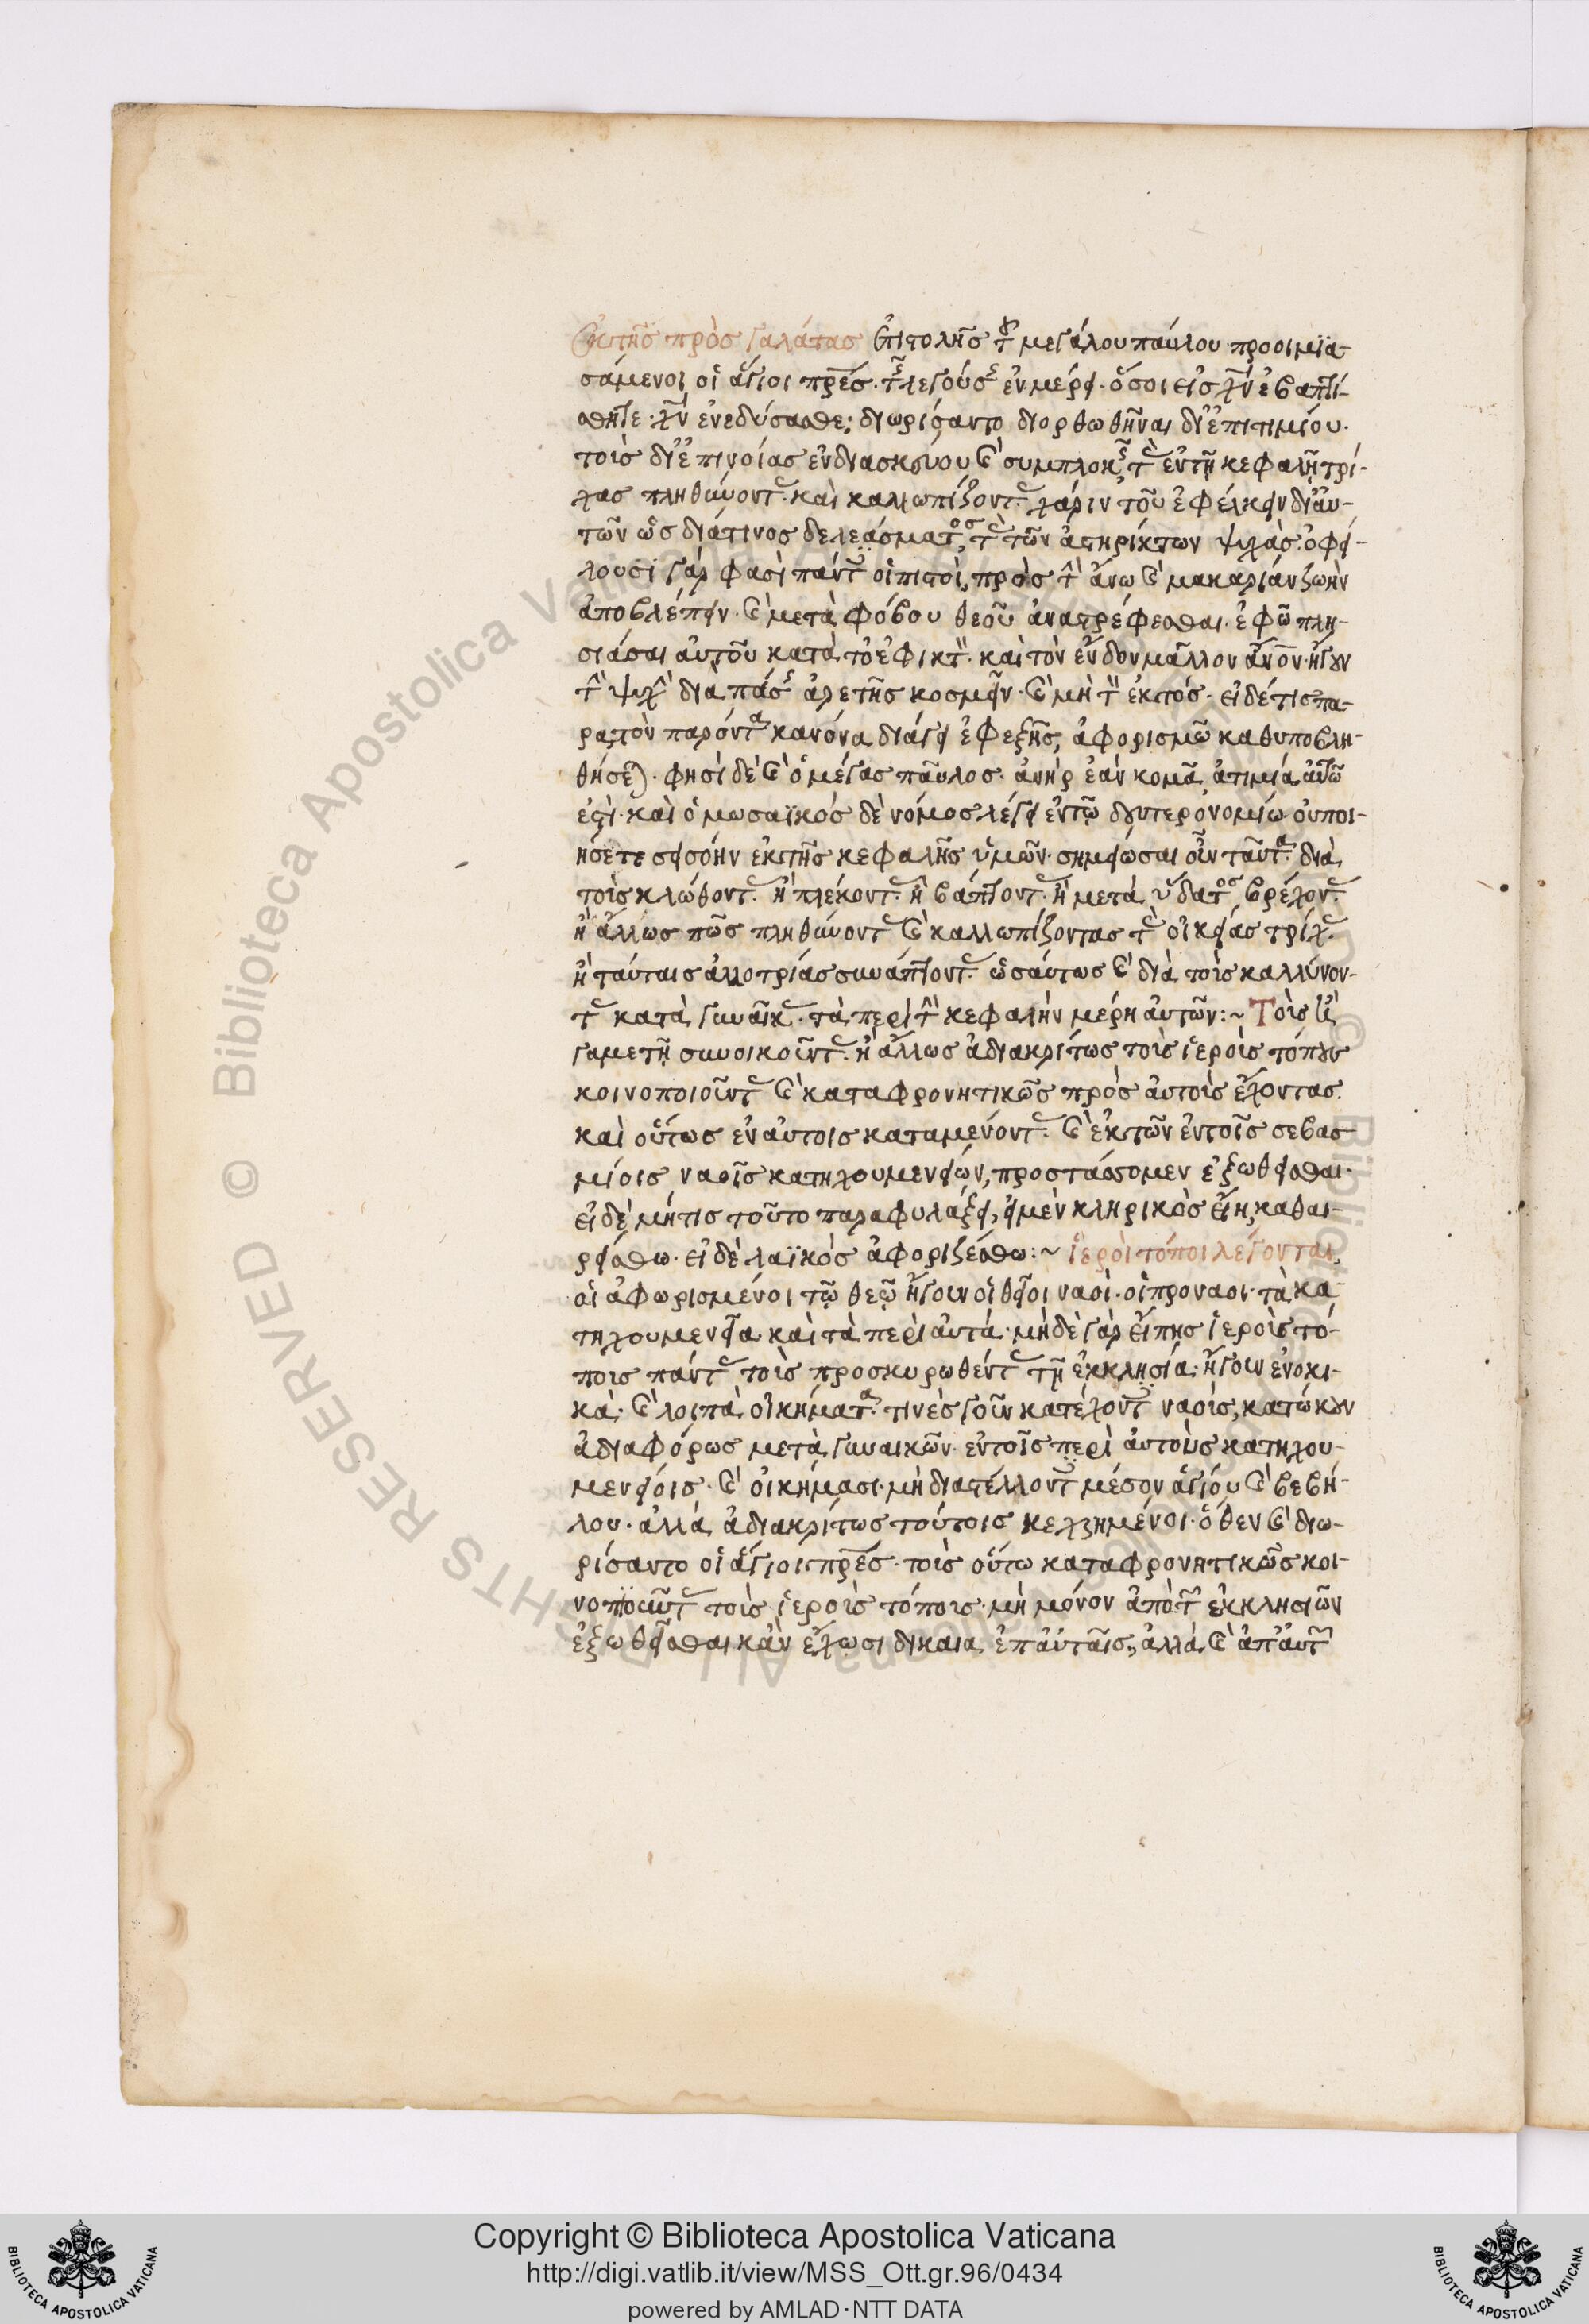 Ἐκ τῆς πρὸς Γαλάτας ἐπιστολῆς τοῦ μεγάλου παύλου προοιμια-
σάμενοι οἱ ἅγιοι πρες· τῆς λεγούσης ἐν μέρει· ὅσοι εἰς χν ἐβαπτί-
σθητε· χν ἐνεδύσασθε· διωρίσαντο διορθωθῆναι δι' ἐπιτιμίου·
τοὺς δι' ἐπινοίας ἐνδιασκεύου καὶ συμπλοκῆς τὰς ἐν τῆ κεφαλῆ τρί-
χας πληθύνοντας· καὶ καλλωπίζοντας· χάριν τοῦ ἐφέλκειν δι' αὐ-
τῶν ὡς διά τινος δελεάσματος, τὰς τῶν ἀστηρίκτων ψυχὰς· ὀφεί-
λουσι γάρ φασὶ πάντες οἱ πιστοὶ, πρὸς τὴν ἄνω καὶ μακαρίαν ζωὴν
ἀποβλέπειν· καὶ μετὰ φόβου θεοῦ ἀναστρέφεσθαι· ἐφ' ῶ πλη-
σιάσαι αὐτοῦ κατὰ τὸ ἐφικτὸν· καὶ τὸν ἔνδον μᾶλλον ἄνον· ἤγουν
τὴν ψυχὴν διὰ πάσης ἀρετῆς κοσμεῖν· καὶ μὴ τὸν ἐκτός· εἰ δέ τις πα-
ρὰ τὸν παρόντα κανόνα διάγει ἐφεξῆς, ἀφορισμῶ καθυποβλη-
θήσεται· φησὶ δὲ καὶ ὁ μέγας παῦλος· ἀνὴρ ἐὰν κομᾶ, ἀτιμία αὐτῶ
ἐστὶ· καὶ ὁ μωσαϊκὸς δὲ νόμος λέγει ἐν τῶ δευτερονομίω οὐ ποι-
ήσετε σισόην ἐκ τῆς κεφαλῆς ὑμῶν· σημείωσαι οὖν ταῦτα· διὰ
τοὺς κλώθοντας· ἢ πλέκοντας· ἢ βάπτοντας· ἢ μετὰ ὕδατος βρέχοντας·
ἢ ἄλλως πῶς πληθύνοντας καὶ καλλωπίζοντας τὰς οἰκείας τρίχας·
ἢ ταύταις ἀλλοτρίας συνάπτοντας· ὡσαύτως καὶ διὰ τοὺς καλλύνον-
τας κατὰ γυναῖκας· τὰ περὶ τὴν κεφαλὴν μέρη αὐτῶν:~ Τοὺς ἢ
γαμετῆ συνοικοῦντας· ἢ ἄλλως ἀδιακρίτως τοὺς ἱεροὺς τόπους
κοινοποιοῦντας καὶ καταφρονητικῶς πρὸς αὐτοὺς ἔχοντας·
καὶ οὕτως ἐν αὐτοις καταμένοντας· καὶ ἐκ τῶν ἐν τοῖς σεβασ-
μίοις ναοῖς κατηχουμενείων, προστάσσομεν ἐξωθεῖσθαι·
εἰ δὲ μή τις τοῦτο παραφυλάξει, εἰ μὲν κληρικὸς εἴη, καθαι-
ρείσθω· εἰ δὲ λαϊκὸς ἀφοριζέσθω:~ ἱεροὶ τόποι λέγονται,
οἱ ἀφωρισμένοι τῶ θεῶ ἤγουν οἱ θεῖοι ναοὶ· οἱ πρόναοι· τὰ κα-
τηχουμενεῖα· καὶ τὰ περὶ αὐτά· μὴ δὲ γὰρ εἴπης ἱεροὺς τό-
πους πάντας τοὺς προσκυρωθέντας τῆ ἐκκλησία· ἤγουν ἐνοικι-
κὰ· καὶ λοιπὰ οἰκήματα· τινὲς γοῦν κατέχοντες ναοὺς, κατώκουν
ἀδιαφόρως μετὰ γυναικῶν· ἐν τοῖς περὶ αὐτοὺς κατηχου-
μενείοις· καὶ οἰκήμασι· μὴ διαστέλλοντες μέσον ἁγίου καὶ βεβή-
λου· ἀλλὰ ἀδιακρίτως τούτοις κεχρημένοι· ὅθεν καὶ διω-
ρίσαντο οἱ ἅγιοι πρες· τοὺς οὕτω καταφρονητικῶς κοι-
νοποιοῦντας τοὺς ἱεροὺς τόπους· μὴ μόνον ἀπὸ τῶν ἐκκλησιῶν
ἐξωθεῖσθαι κἂν ἔχωσι δίκαια ἐπ' αὐταῖς, ἀλλὰ καὶ ἀπ' αὐτῶν
Copyright © Biblioteca Apostolica Vaticana
http://digi.vatlib.it/view/MSS_Ott.gr.96/0434
powered by AMLAD·NTT DATA
BIBLIOTECA APOSTOLICA VATICANA
BIBLIOTECA APOSTOLICA VATICANA